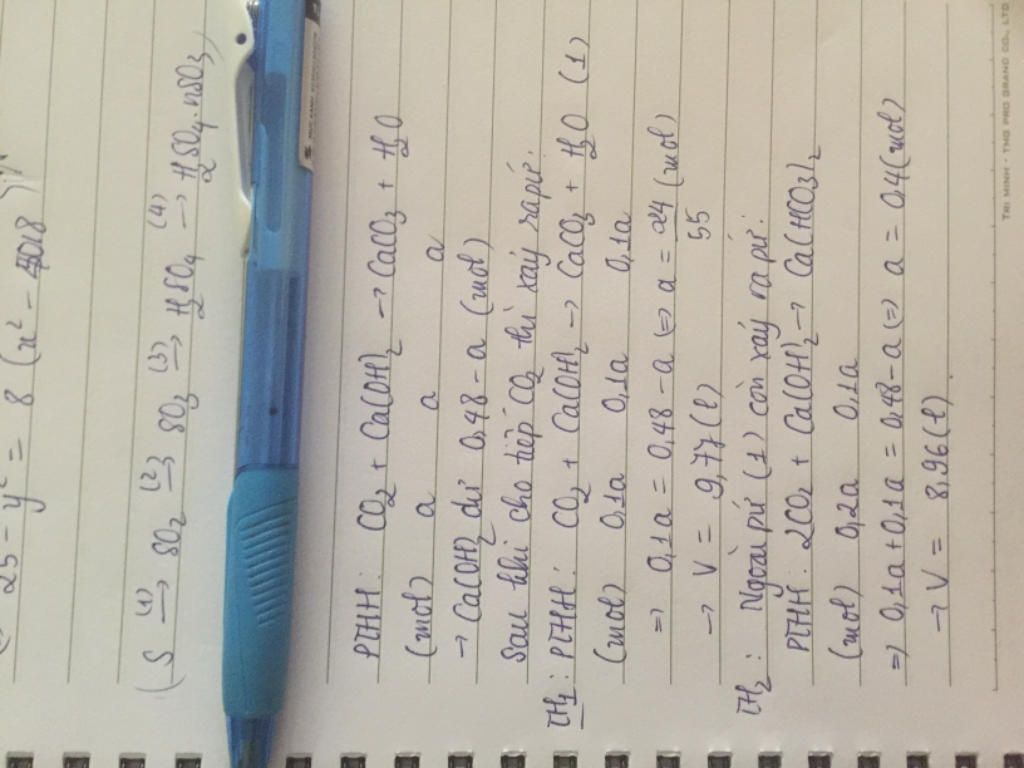 25 - y² = 8 (x² - 2018
(S (1)→ SO₂ (2)→ SO₃ (3)→ H₂SO₄ (4)→ H₂SO₄.nSO₃)
PTHH: CO₂ + Ca(OH)₂ → CaCO₃ + H₂O
(mol) a a a
→ Ca(OH)₂ dư 0,48 - a (mol)
Sau khi cho tiếp CO₂ thì xảy ra pứ:
TH₁: PTHH: CO₂ + Ca(OH)₂ → CaCO₃ + H₂O (1)
(mol) 0,1a 0,1a 0,1a
⇒ 0,1a = 0,48 - a ⇔ a = 24/55 (mol)
→ V = 9,77 (l)
TH₂: Ngoài pứ (1) còn xảy ra pứ:
PTHH: 2CO₂ + Ca(OH)₂ → Ca(HCO3)₂
(mol) 0,2a 0,1a
⇒ 0,1a + 0,1a = 0,48 - a ⇔ a = 0,4 (mol)
→ V = 8,96 (l)
TRI MINH - TMG PRO BRAND CO., LTD.